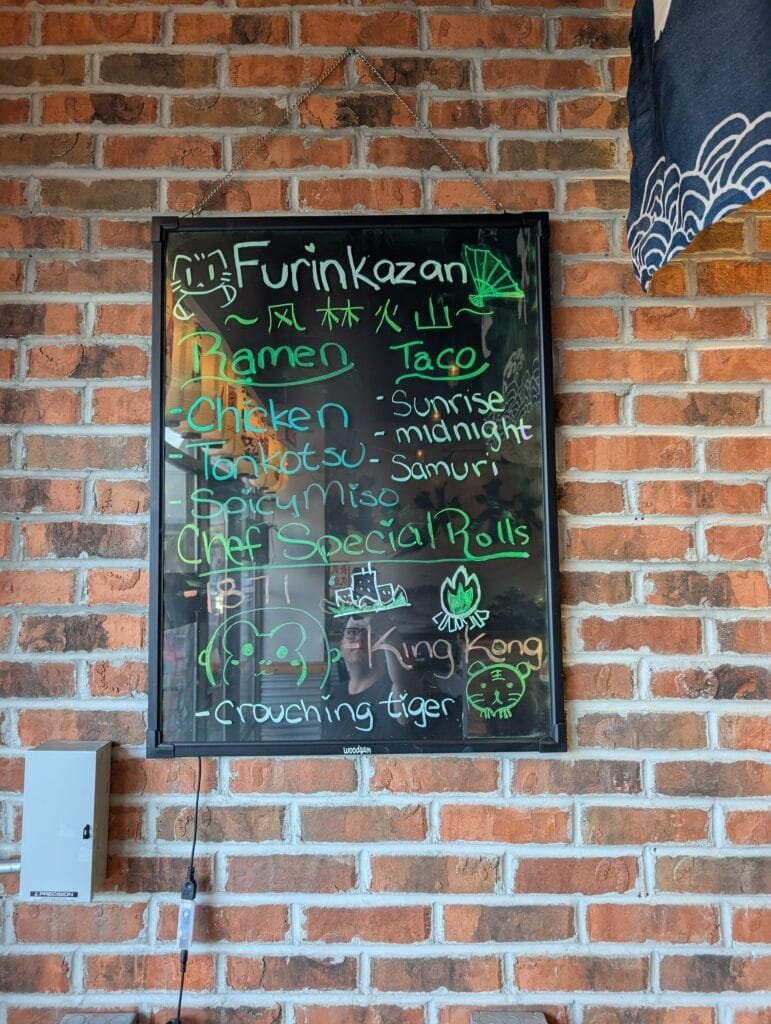 Furinkazan
~风林火山~
Ramen Taco
- Chicken - Sunrise
- Tonkotsu - midnight
- Spicy Miso - Samuri
Chef Special Rolls
- 1871
- King Kong
- Crouching tiger
woodgam
PRECISION